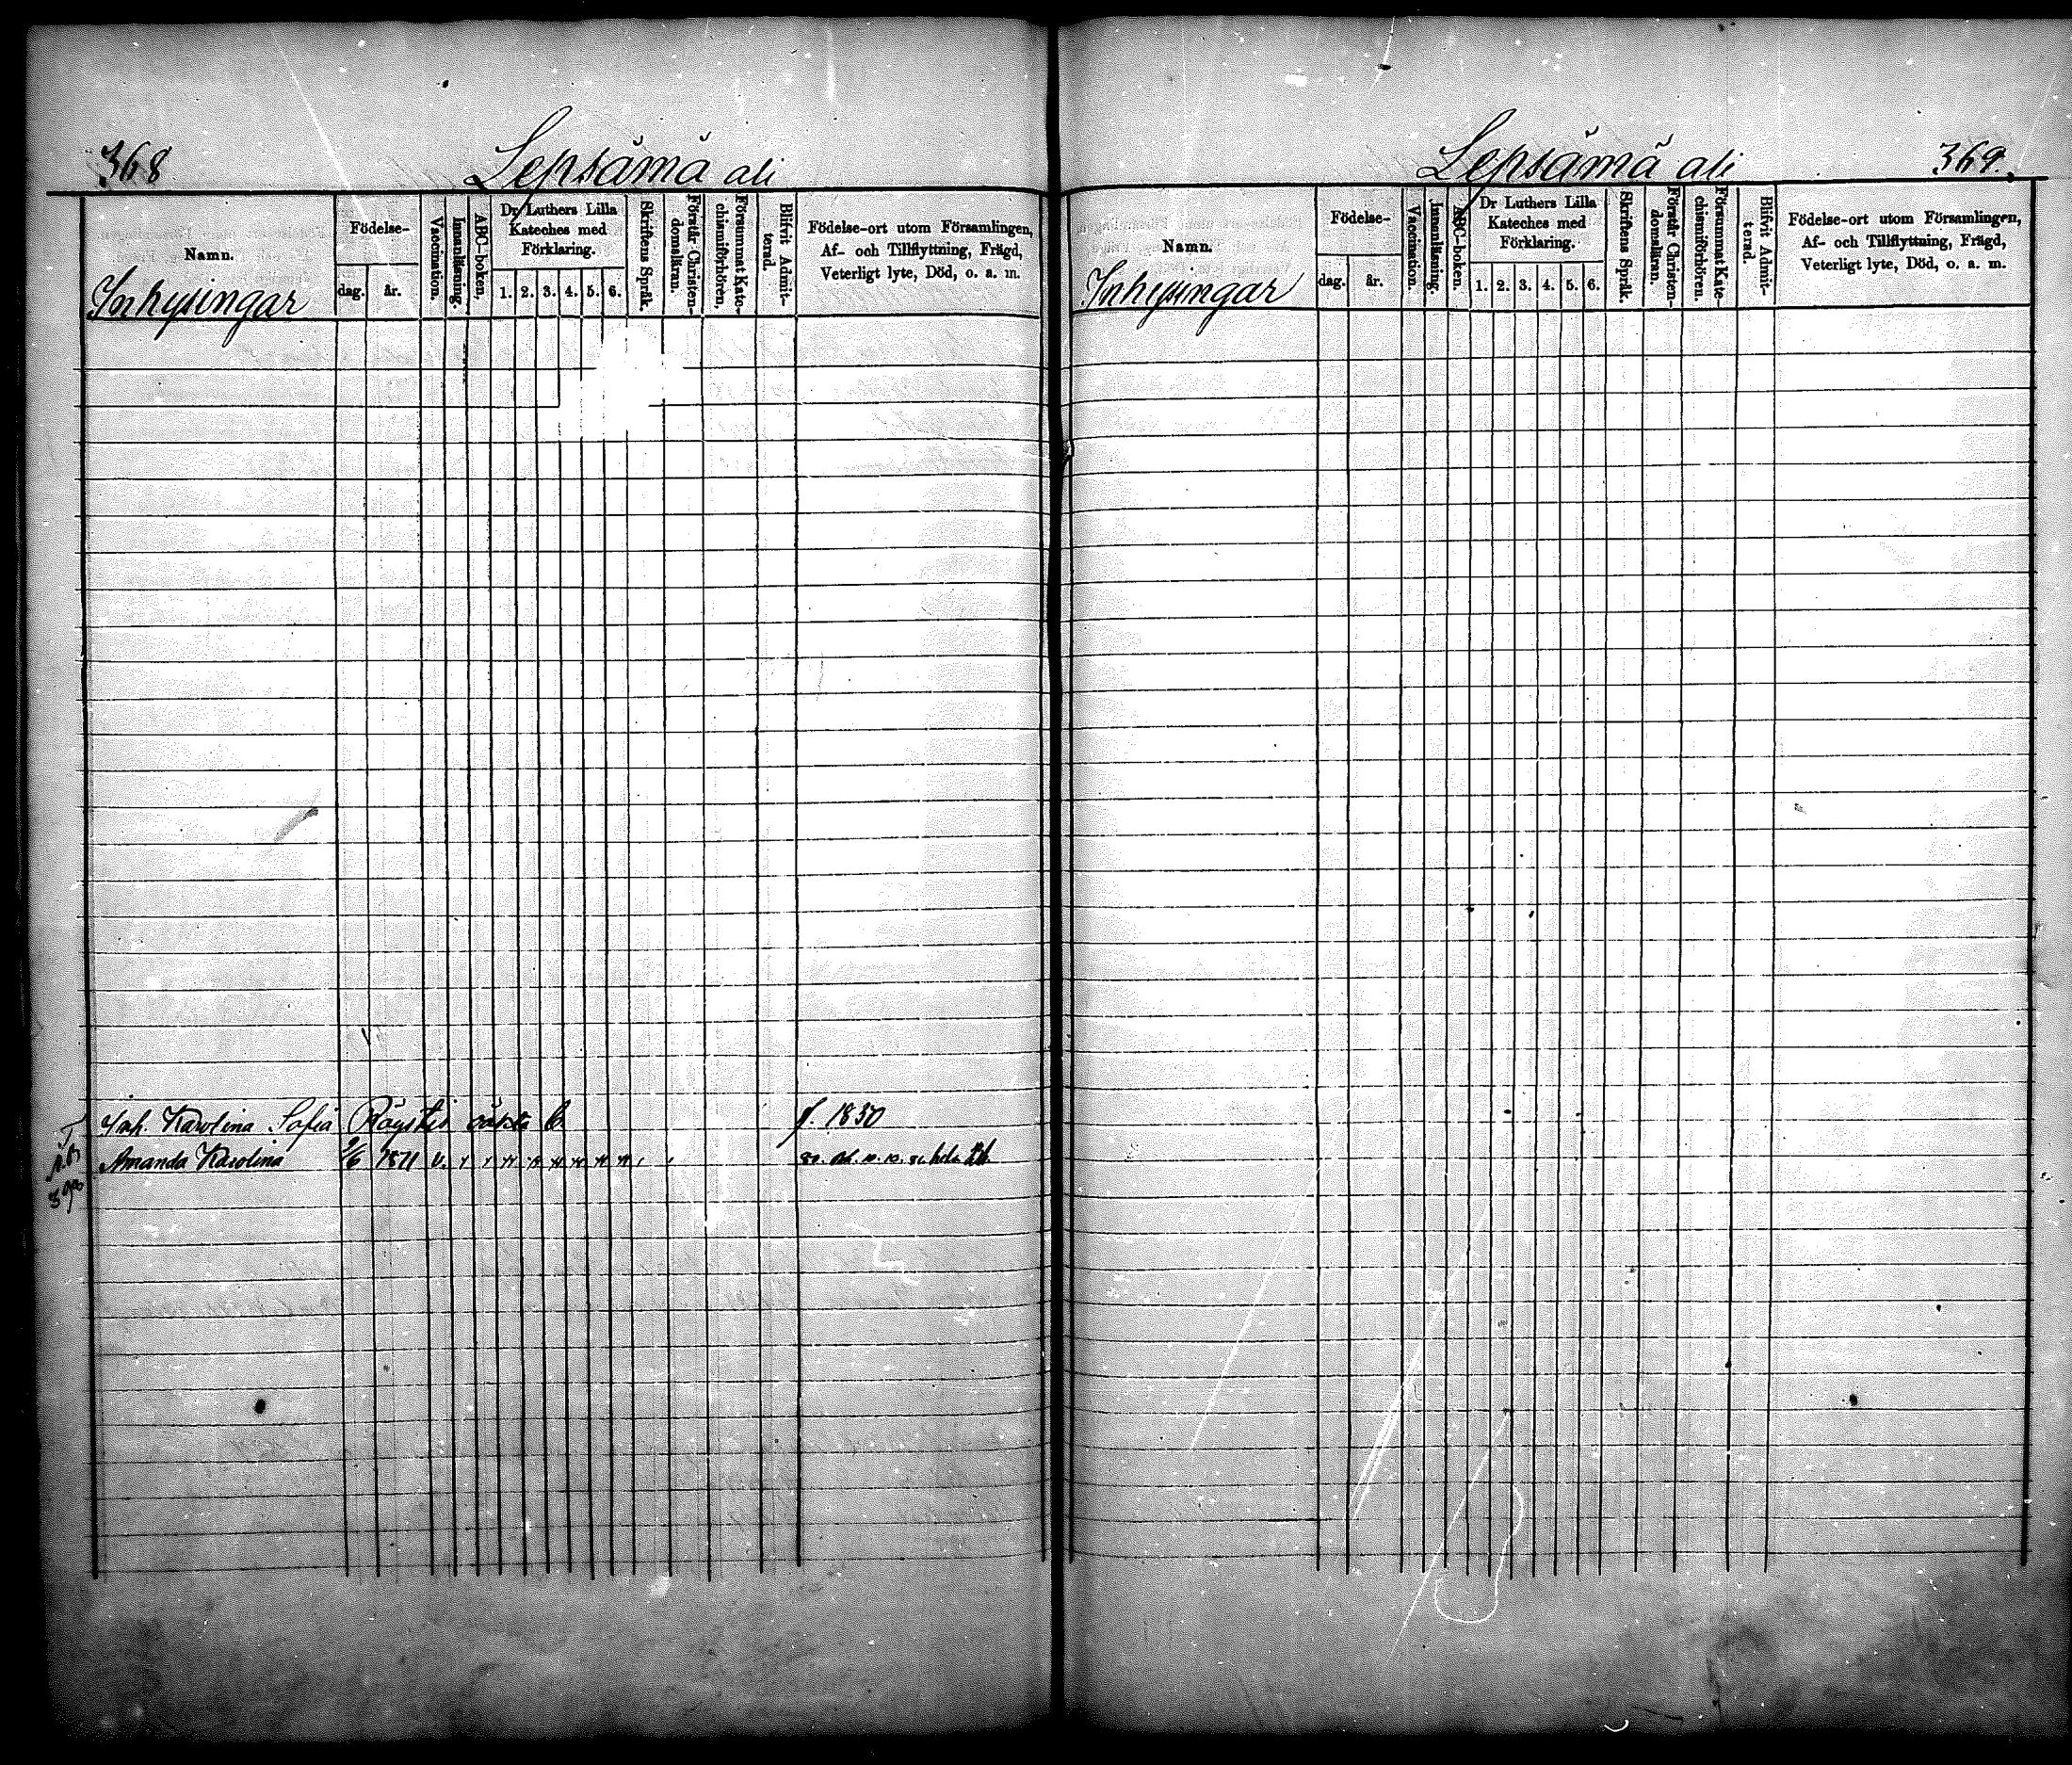 368
Lepsämä ali
Namn.
Inhysingar
Födelse-
dag.
år.
Vaccination.
Innanläsning.
ABC-boken,
Dr Luthers Lilla
Kateches med
Förklaring.
1. 2. 3. 4. 5. 6.
Skriftens Språk.
Förstår Christen-
domsläran.
Försummat Kate-
chismiförhören,
Blifvit Admit-
terad.
Födelse-ort utom Församlingen,
Af- och Tillflyttning, Frägd,
Veterligt lyte, Död, o. a. m.
Inh. Karolina Sofia f. 1830
Amanda Karolina 9/6 1871 v.
Lepsämä ali
369.
Namn.
Inhysingar
Födelse-
dag.
år.
Vaccination.
Innanläsning.
ABC-boken.
Dr Luthers Lilla
Kateches med
Förklaring.
1. 2. 3. 4. 5. 6.
Skriftens Språk.
Förstår Christen-
domsläran.
Försummat Kate-
chismiförhören.
Blifvit Admit-
terad.
Födelse-ort utom Församlingen,
Af- och Tillflyttning, Frägd,
Veterligt lyte, Död, o. a. m.